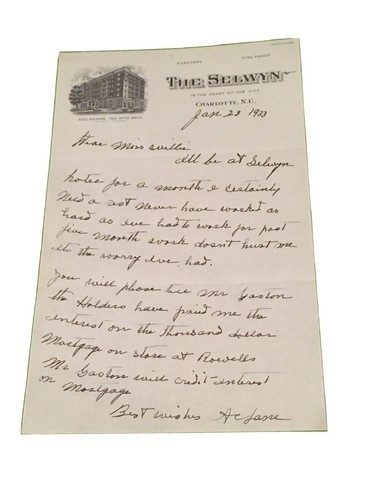 EUROPEAN FIRE PROOF
THE SELWYN
IN THE HEART OF THE CITY
CHARLOTTE, N.C.
Jan 23 1933
Dear Miss Willie
Ill be at Selwyn
Hotel for a month I certainly
need a rest never have worked as
hard as Ive had to work for past
five month work doesn't hurt me
its the worry Ive had.
You will please tell Mr Gaston
the Holders have paid me the
interest on the thousand dollar
Mortgage on store at Rowells
Mr Gaston will credit interest
on Mortgage
Best wishes AC Lane